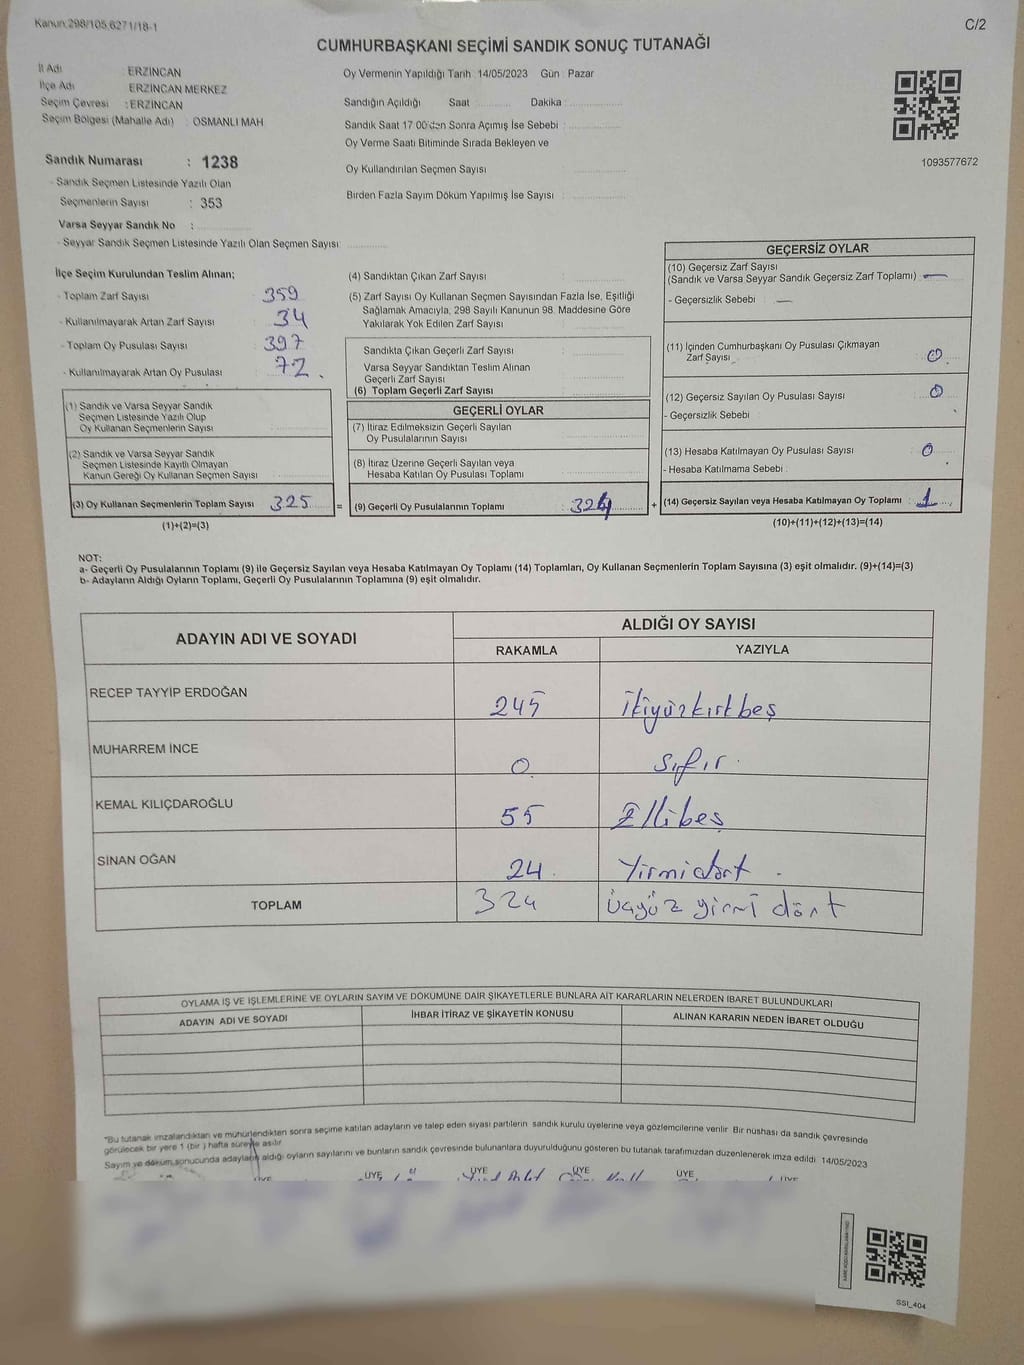 Kanun:298/105,6271/18-1
C/2
CUMHURBAŞKANI SEÇİMİ SANDIK SONUÇ TUTANAĞI
İl Adı : ERZİNCAN
İlçe Adı : ERZİNCAN MERKEZ
Seçim Çevresi : ERZİNCAN
Seçim Bölgesi (Mahalle Adı) : OSMANLI MAH
Sandık Numarası : 1238
- Sandık Seçmen Listesinde Yazılı Olan
Seçmenlerin Sayısı : 353
Varsa Seyyar Sandık No :
- Seyyar Sandık Seçmen Listesinde Yazılı Olan Seçmen Sayısı
Oy Vermenin Yapıldığı Tarih : 14/05/2023 Gün : Pazar
Sandığın Açıldığı Saat Dakika :
Sandık Saat 17:00'den Sonra Açımış İse Sebebi :
Oy Verme Saati Bitiminde Sırada Bekleyen ve
Oy Kullandırılan Seçmen Sayısı
Birden Fazla Sayım Döküm Yapılmış İse Sayısı :
1093577672
İlçe Seçim Kurulundan Teslim Alınan;
- Toplam Zarf Sayısı : 359
- Kullanılmayarak Artan Zarf Sayısı : 34
- Toplam Oy Pusulası Sayısı : 397
- Kullanılmayarak Artan Oy Pusulası : 72
(1) Sandık ve Varsa Seyyar Sandık
Seçmen Listesinde Yazılı Olup
Oy Kullanan Seçmenlerin Sayısı :
(2) Sandık ve Varsa Seyyar Sandık
Seçmen Listesinde Kayıtlı Olmayan
Kanun Gereği Oy Kullanan Seçmen Sayısı
(3) Oy Kullanan Seçmenlerin Toplam Sayısı 325 =
(1)+(2)=(3)
(4) Sandıktan Çıkan Zarf Sayısı
(5) Zarf Sayısı Oy Kullanan Seçmen Sayısından Fazla İse, Eşitliği
Sağlamak Amacıyla, 298 Sayılı Kanunun 98. Maddesine Göre
Yakılarak Yok Edilen Zarf Sayısı
Sandıkta Çıkan Geçerli Zarf Sayısı
Varsa Seyyar Sandıktan Teslim Alınan
Geçerli Zarf Sayısı
(6) Toplam Geçerli Zarf Sayısı
GEÇERLİ OYLAR
(7) İtiraz Edilmeksizin Geçerli Sayılan
Oy Pusulalarının Sayısı
(8) İtiraz Üzerine Geçerli Sayılan veya
Hesaba Katılan Oy Pusulası Toplamı
(9) Geçerli Oy Pusulalarının Toplamı : 324 +
GEÇERSİZ OYLAR
(10) Geçersiz Zarf Sayısı
(Sandık ve Varsa Seyyar Sandık Geçersiz Zarf Toplamı) : —
- Geçersizlik Sebebi : —
(11) İçinden Cumhurbaşkanı Oy Pusulası Çıkmayan
Zarf Sayısı : 0
(12) Geçersiz Sayılan Oy Pusulası Sayısı : 0
- Geçersizlik Sebebi :
(13) Hesaba Katılmayan Oy Pusulası Sayısı : 0
- Hesaba Katılmama Sebebi :
(14) Geçersiz Sayılan veya Hesaba Katılmayan Oy Toplamı : 1
(10)+(11)+(12)+(13)=(14)
NOT:
a- Geçerli Oy Pusulalarının Toplamı (9) ile Geçersiz Sayılan veya Hesaba Katılmayan Oy Toplamı (14) Toplamları, Oy Kullanan Seçmenlerin Toplam Sayısına (3) eşit olmalıdır. (9)+(14)=(3)
b- Adayların Aldığı Oyların Toplamı, Geçerli Oy Pusulalarının Toplamına (9) eşit olmalıdır.
ADAYIN ADI VE SOYADI ALDIĞI OY SAYISI
RAKAMLA YAZIYLA
RECEP TAYYİP ERDOĞAN 245 İkiyüzkırkbeş
MUHARREM İNCE 0 sıfır
KEMAL KILIÇDAROĞLU 55 Ellibeş
SİNAN OĞAN 24 Yirmidört
TOPLAM 324 üçyüz yirmi dört
OYLAMA İŞ VE İŞLEMLERİNE VE OYLARIN SAYIM VE DÖKÜMÜNE DAİR ŞİKAYETLERLE BUNLARA AİT KARARLARIN NELERDEN İBARET BULUNDUKLARI
ADAYIN ADI VE SOYADI İHBAR İTİRAZ VE ŞİKAYETİN KONUSU ALINAN KARARIN NEDEN İBARET OLDUĞU
*Bu tutanak imzalandıktan ve mühürlendikten sonra seçime katılan adayların ve talep eden siyasi partilerin sandık kurulu üyelerine veya gözlemcilerine verilir. Bir nüshası da sandık çevresinde
görülecek bir yere 1 (bir) hafta süreyle asılır.
Sayım ve döküm sonucunda adayların aldığı oyların sayılarını ve bunların sandık çevresinde bulunanlara duyurulduğunu gösteren bu tutanak tarafımızdan düzenlenerek imza edildi. 14/05/2023
ÜYE ÜYE ÜYE ÜYE ÜYE ÜYE
SSI_404